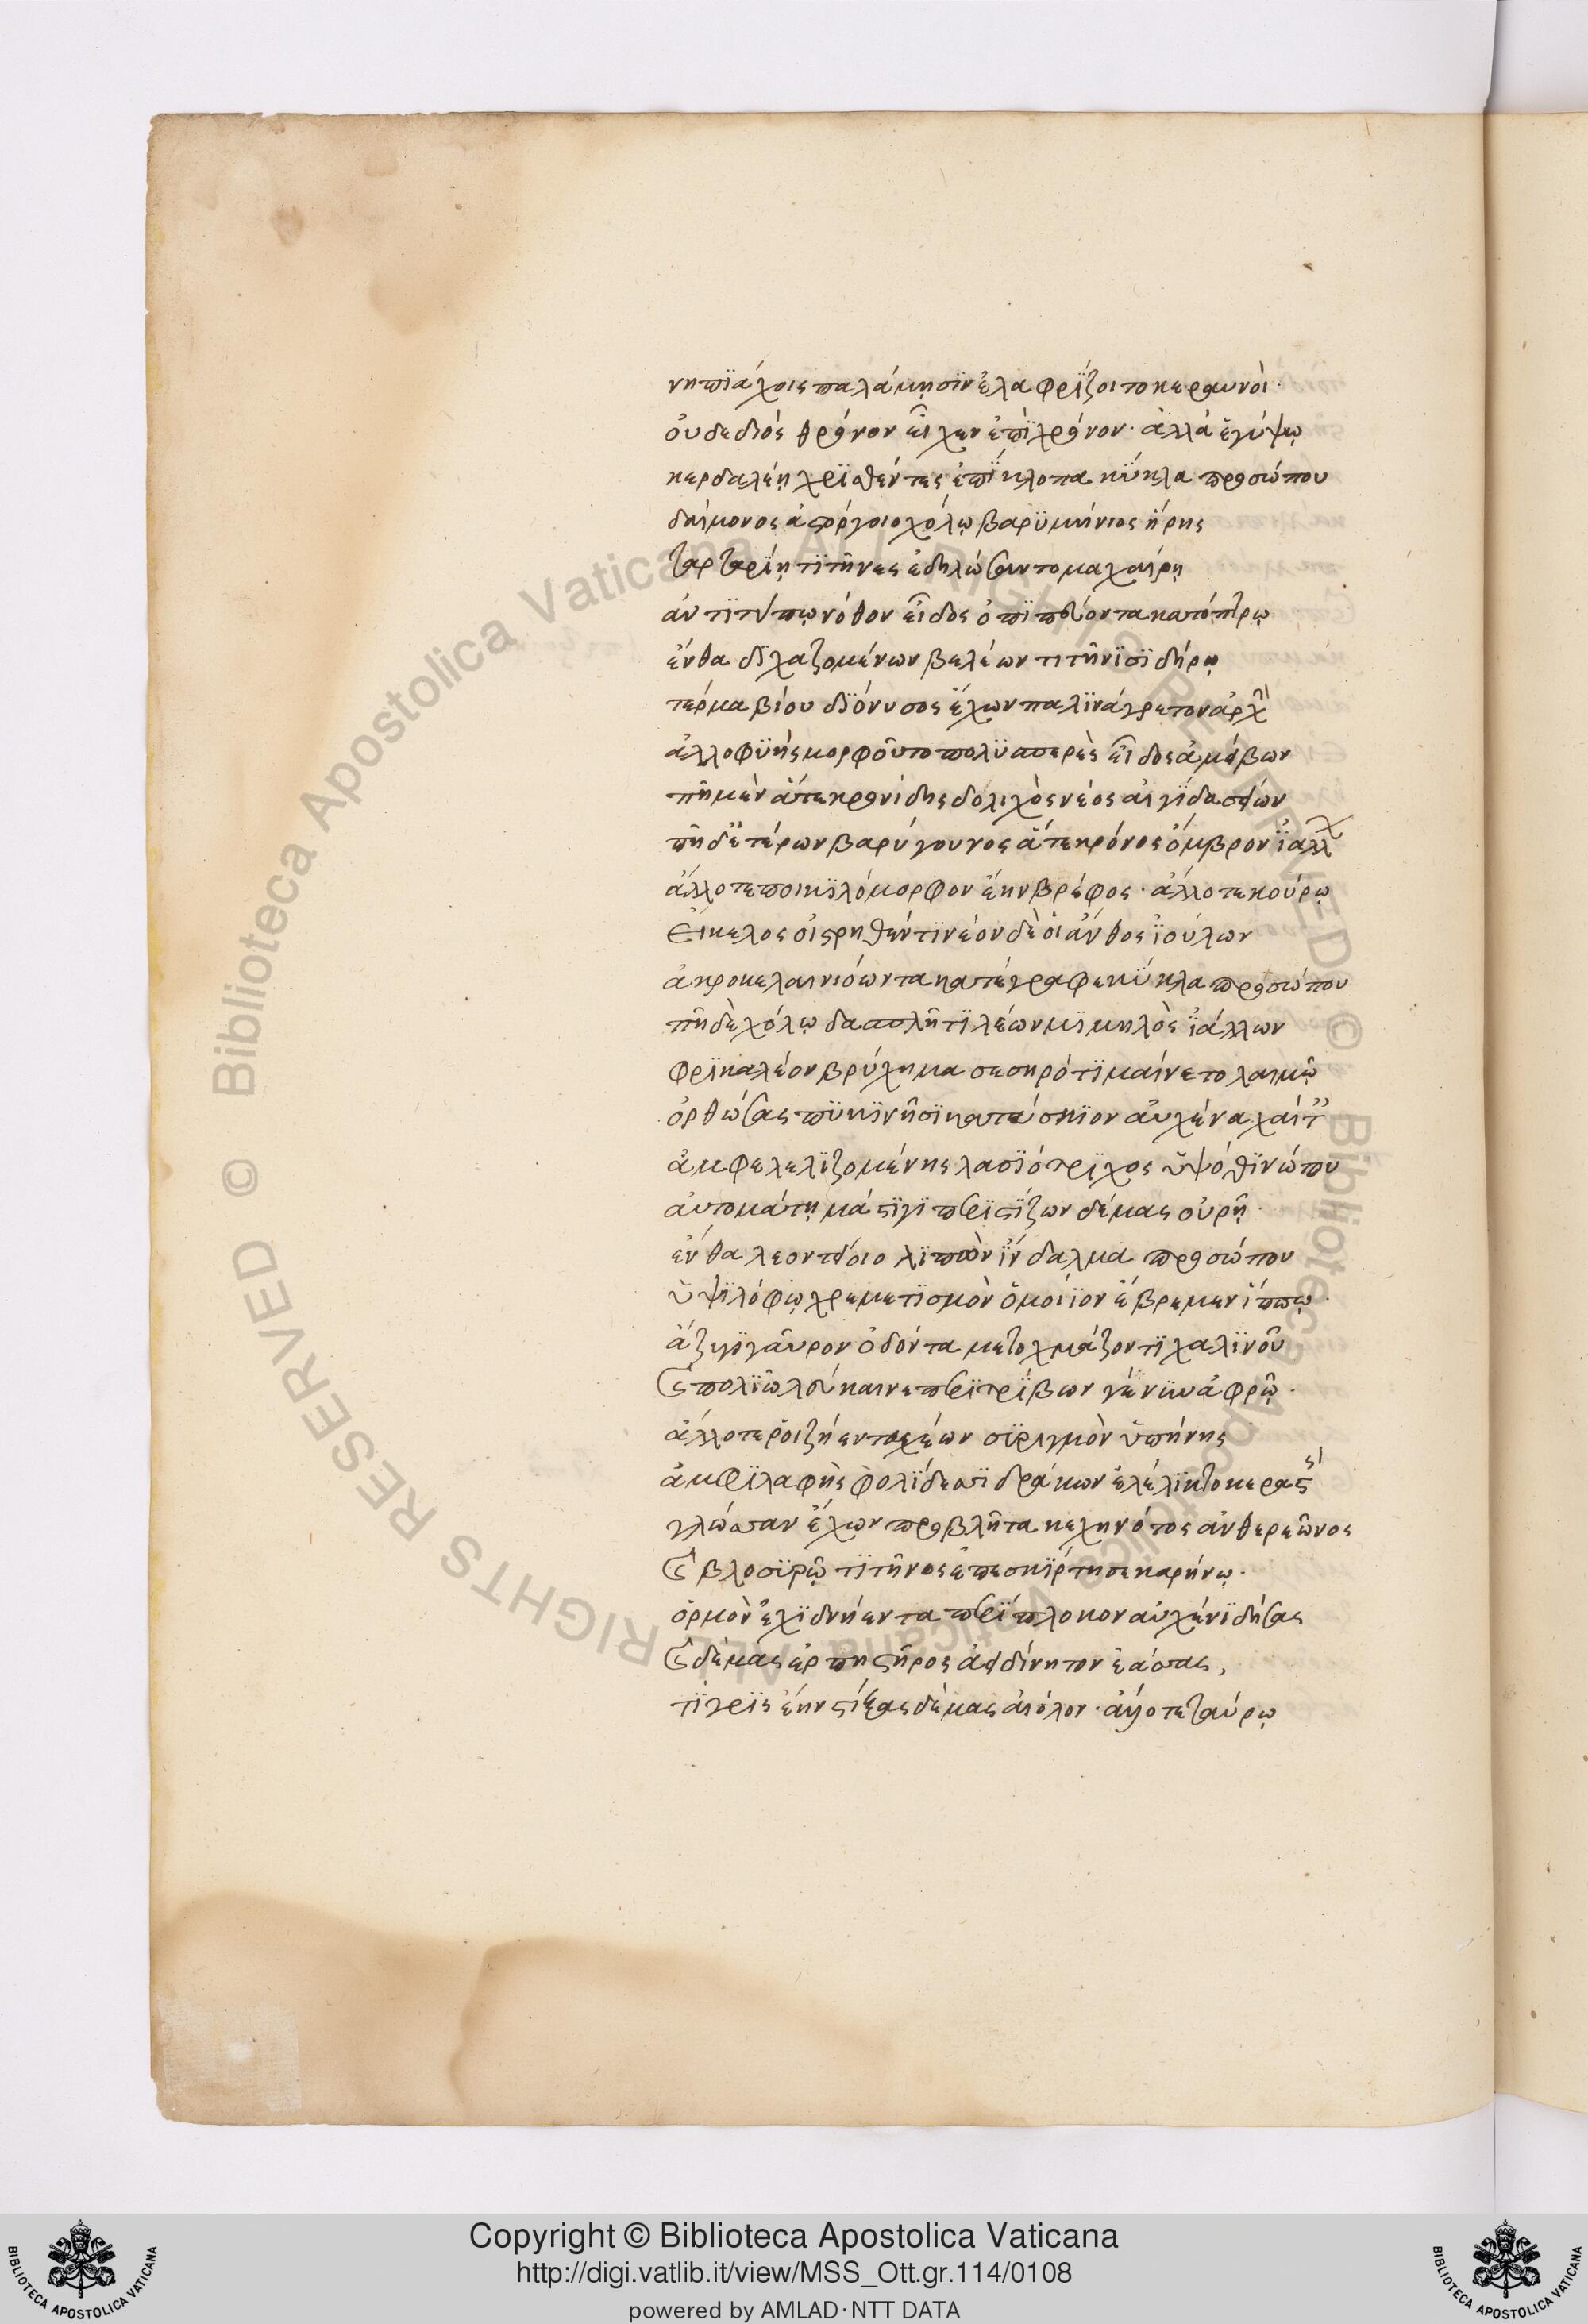 νηπϊάχοις παλάμῃσϊν ἐλαφρΐζοιτο κεραυνοὶ·
οὐδε διός θρόνον εἶχεν ἐπϊχρόνον· ἀλλά ἑ γύψῳ
κερδαλέῃ χρϊσθέντες ἐπϊκλοπα κύκλα προσώπου
δαίμονος ἀστόργοιο χόλῳ βαρϋμήνιος ἥρης
ταρταρΐῃ τϊτῆνες ἐδηλώσαντο μαχαίρῃ
ἀντϊτύπῳ νόθον εἶδος ὀπϊπεύοντα κατόπτρῳ
ἔνθα δϊχαζομένων βελέων τιτῆνϊ σϊδήρῳ
τέρμα βίου δϊόνυσος ἔχων παλϊνάγρετον ἀρχὴ
ἀλλοφϋὴς μορφοῦτο πολϋσπερὲς εἶδος ἀμείβων
πῆ μὲν ἅτε κρονίδης δολιχὸς νέος αἰγΐδα σείων
πῆ δὲ τέρων βαρύγουνος ἅτε κρόνος ὄμβρον ϊάλλ
ἄλλοτε ποικϊλόμορφον ἔην βρέφος· ἄλλοτε κούρῳ
εἴκελος οἰστρηθέντϊ νέον δὲ οἱ ἄνθος ϊούλων
ἀκροκελαινιόωντα κατέγραφε κύκλα προσώπου
πῆ δὲ χόλῳ δασπλῆτϊ λέων μϊμηλὸς ϊάλλων
φρϊκαλέον βρύχημα σεσηρότϊ μαίνετο λαιμῷ
ὀρθώσας πϋκϊνῆσϊ κατάσκϊον αὐχένα χαίτ
ἀμφελελϊζομένης λασϊότρϊχος ὑψόθϊ νώτου
αὐτομάτῃ μάστϊγϊ περϊστΐζων δέμας οὐρῇ·
ἔνθα λεοντείοιο λϊπὼν ἴνδαλμα προσώπου
ὑψϊλόφῳ χρεμετϊσμὸν ὁμοίϊον ἔβρεμεν ἵππῳ·
ἄζυγϊ γαῦρον ὀδόντα μετοχμάζοντϊ χαλϊνοῦ
καὶ πολϊῷ λεύκαινε περϊτρΐβων γένϋν ἀφρῷ·
ἄλλοτε ῥοιζήεντα χέων σϋριγμὸν ὑπήνης
ἀμφϊλαφὴς φολΐδεσσϊ δράκων ἐλέλϊκτο κεράστ
γλῶσσαν ἔχων προβλῆτα κεχηνότος ἀνθερεῶνος
καὶ βλοσϋρῷ τϊτῆνος ἐπεσκΐρτησε καρήνῳ·
ὁρμὸν ἐχϊδνήεντα περΐπλοκον αὐχένϊ δήσας
καὶ δέμας ἑρπηστῆρος ἀειδίνητον ἐάσας,
τΐγρϊς ἔην στίξας δέμας αἰόλον· ἄλλοτε ταύρῳ